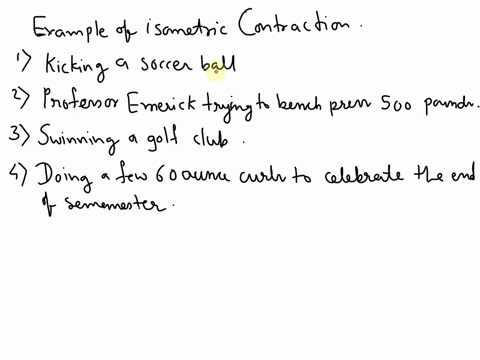 Example of isometric Contraction.
1) Kicking a soccer ball
2) Professor Emerick trying to bench press 500 pounds.
3) Swinning a golf club.
4) Doing a few 60 ounce curls to celebrate the end
of sememester.